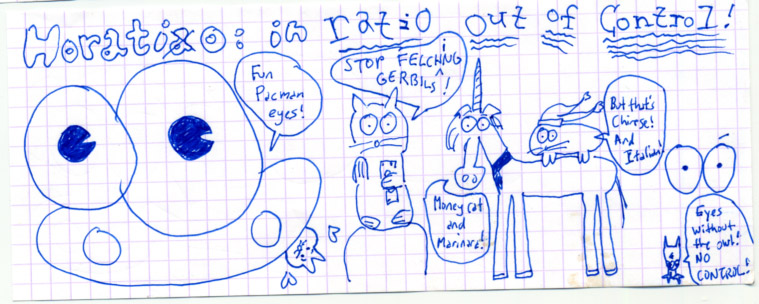 Horatixo: in ratio out of Control!
Fun
Pacman
eyes!
STOP FELCHING
GERBILS!
Money cat
and
Marinara!
But that's
Chinese!
And
Italian!
Eyes
without
the owl!
NO
CONTROL!